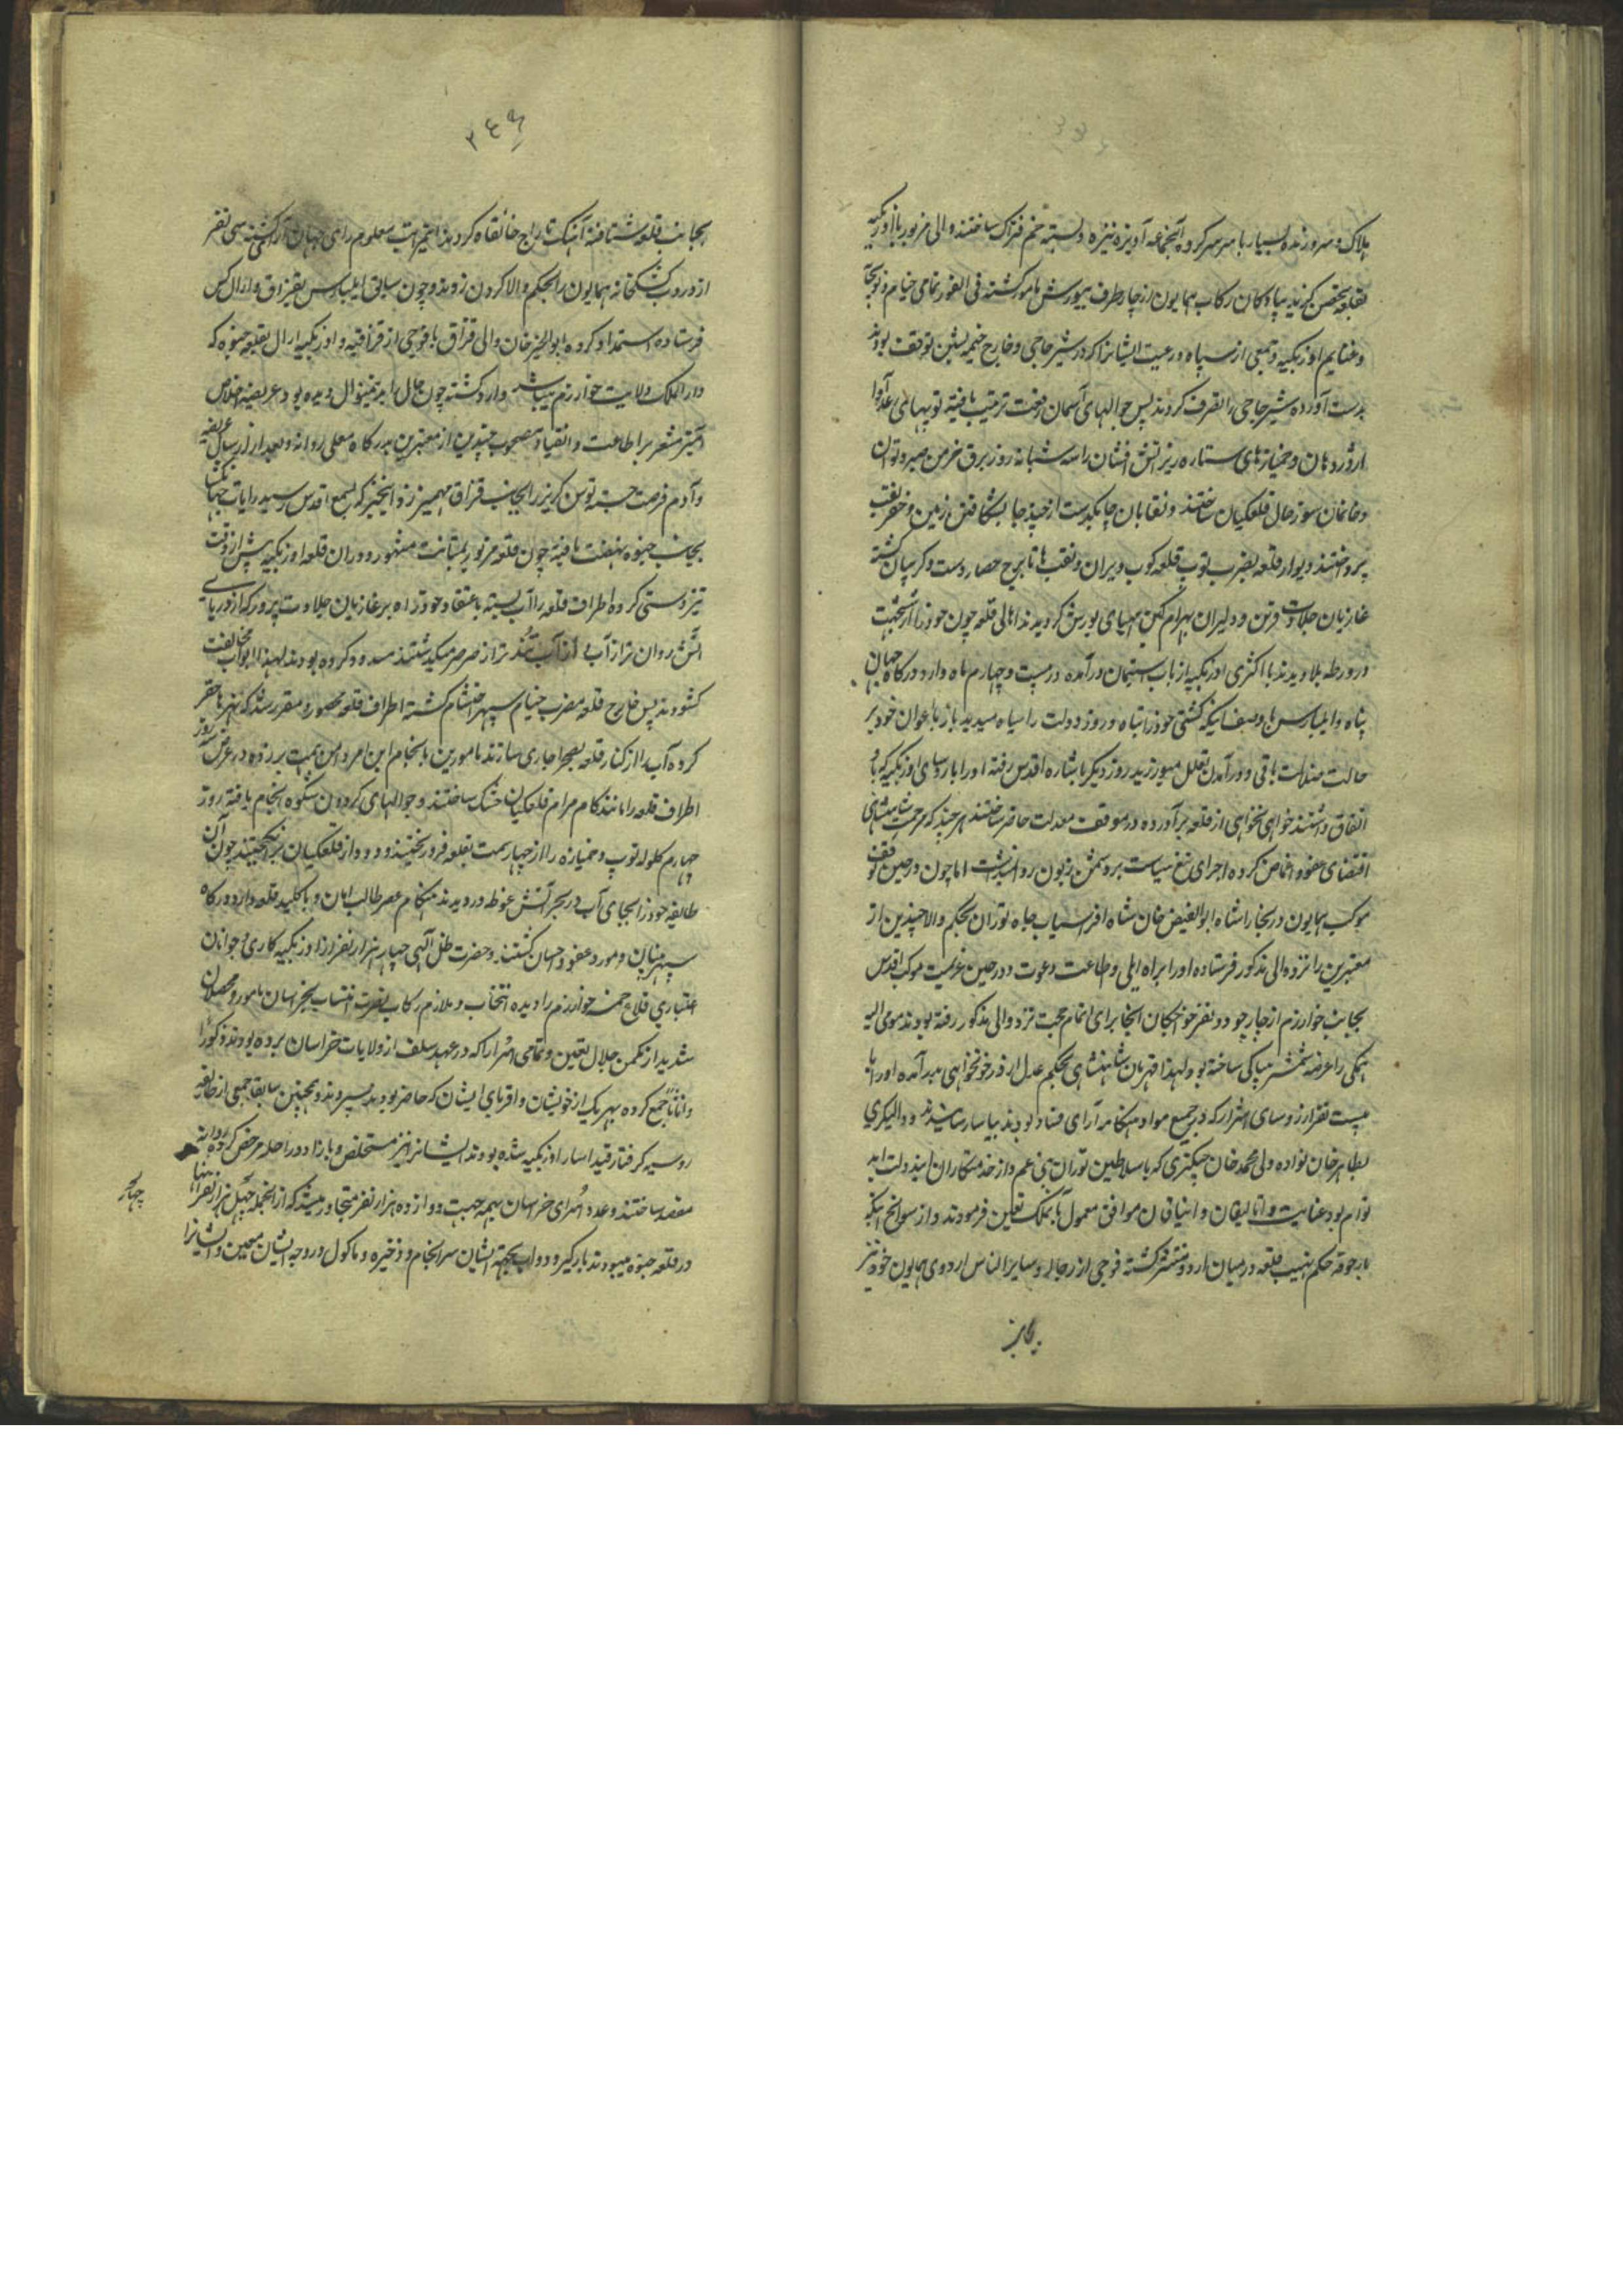 هلاک و سر و زنده بسیار با سر سرکرده آنجماعه آویزه نیزه و بسته خم فتراک ساختند والی مزبور با اوزبکیه
بقلعه متحصن گردید پیادگان رکاب همایون از چار طرف بیورش مامور گشته فی الفور تمامی خیام و توپخانه
و غنایم اوزبکیه و جمعی از سپاه و رعیت ایشانرا که در شیر حاجی و خارج خیمه نشین توقف بودند
بدست آورده شیر حاجی را تصرف کردند پس حوالهای آسمان رفعت ترتیب یافته توپهای
اژدر دهان و خمپارهای ستاره ریز آتش افشان را سه شبانه روز برق خرمن صبر و توان
و خانمان سوز حال قلعگیان ساختند و نقابان چابکدست از چند جا بشکافتن زمین و حفر نقب
پرداختند و دیوار قلعه بضرب توپ قلعه کوب ویران و نقب ها تا برج حصار دست و گریبان گشته
غازیان جلادت قرین و دلیران بهرام کین مهیای یورش گردیدند اهالی قلعه چون خود را از ششجهت
در ورطه بلا دیدند با اکثری اوزبکیه از باب استیمان درآمده در بیست و چهارم ماه وارد درگاه جهان
پناه و ایلبارس با وصف اینکه کشتی خود را تباه و روز دولت را سیاه میدید باز با عوان خود بر
حالت ضلالت باقی و در آمدن تعلل میورزید روز دیگر باشاره اقدس رفته او را با رؤسای اوزبکیه که با او
اتفاق داشتند خواهی نخواهی از قلعه برآورده در موقف معدلت حاضر ساختند هر چند که مرحمت شاهنشاهی
اقتضای عفو و اغماض کرده اجرای تیغ سیاست بر دشمن زبون روا نداشت اما چون در حین توقف
موکب همایون در بخارا شاه ابوالفیض خان شاه افراسیاب جاه توران بحکم والا چندین از
معتبرین را نزد والی مذکور فرستاده او را براه ایلی و طاعت دعوت و در حین عزیمت موکب اقدس
بجانب خوارزم از چارجو دو نفر خواجگان آنجا برای اتمام حجت نزد والی مذکور رفته بودند مومی الیه
همگی را عرضه شمشیر بیباکی ساخته بود لهذا قهرمان شاهنشاهی بحکم عدل از در خونخواهی درآمده او را با
بیست نفر از رؤسای اشرار که در جمیع مواد هنگامه آرای فساد بودند بیاسا رسانیدند و والیگری
بطاهر خان نواده ولی محمد خان چنگیزی که با سلاطین توران بنی عم و از خدمتکاران ایندولت ابد
توأم بود عنایت و اتالیقان و ایناقان موافق معمول آن مملکت تعیین فرمودند و از سوانح اینکه
بارجوقه حکم نهیب قلعه در میان اردو منتشر گشته فوجی از رجاله و سایر الناس اردوی همایون خود نیز
بجانب
۳۴۹
بجانب قلعه شتافته آهنگ تاراج خانقاه کردند اینمراتب معلوم رای جهان آرا گشته سی نفر
از دروب کشکخانه همایون را بحکم والا گردن زدند و چون سابق ایلبارس بقزاق و ارال کس
فرستاده استمداد کرده ابوالخیر خان والی قزاق با فوجی از قزاقیه و اوزبکیه ارال بقلعه خیوه که
دار الملک ولایت خوارزم میباشد وارد گشته چون حال را بدینمنوال دیده بود عریضه اخلاص
آمیز مشعر بر اطاعت و انقیاد مصحوب چندین از معتبرین بدرگاه معلی روانه و بعد از ارسال عریضه
و آدم فرصت جسته توسن گریز را بجانب قزاق مهمیز زد اینخبر که بسمع اقدس رسید رایات جهانگشا
بجانب خیوه نهضت یافته چون قلعه مزبور بمتانت مشهور و دوران قلعه اوزبکیه پیش از وقت
تیز دستی کرده اطراف قلعه را آب بسته باعتقاد خود راه بر غازیان جلادت پرور که از دریای
آتش روان تر از آب و از آب تند تر از صرصر میگذشتند مسدود کرده بودند لهذا ابواب مخالفت
گشودند پس خارج قلعه مضرب خیام سپهر احتشام گشته اطراف قلعه محصور و مقرر شد که نهرها حفر
کرده آب را از کنار قلعه بصحرا جاری سازند مامورین بانجام این امر دامن همت بر زده در عرض سه روز
اطراف قلعه را مانند کام مرام قلعگیان خشک ساختند و حوالهای گردون شکوه انجام یافته روز
چهارم گلوله توپ و خمپاره را از چهار سمت بقلعه فرو ریختند و دود از قلعگیان برانگیختند چون آن
طایفه خود را بجای آب در بحر آتش غوطه ور دیدند هنگام عصر طالب امان و با کلید قلعه وارد درگاه
سپهر بنیان و مورد عفو و احسان گشتند و حضرت ظل الهی چهار هزار نفر از اوزبکیه کاری و جوانان
اعتباری قلاع خمسه خوارزم را دیده انتخاب و ملازم رکاب نصرت انتساب بخراسان مامور و محصلان
شدید از مکمن جلال تعیین و تمامی اسرا را که در عهد سلف از ولایات خراسان برده بودند ذکوراً
و اناثاً جمع کرده بهر یک از خویشان و اقربای ایشان که حاضر بودند سپردند و همچنین سابقا جمعی از طایفه
روسیه گرفتار قید اسار اوزبکیه شده بودند ایشانرا نیز مستخلص و با زاد و راحله مرخص کرده روانه
مقصد ساختند و عدد اسرای خراسان بهمه جهت دوازده هزار نفر متجاوز میشد که از آنجمله چهل هزار نفر آنها
در قلعه خیوه میبودند بارگیر و دواب بجهة ایشان سرانجام و ذخیره و ماکول در وجه ایشان معین و ایشانرا
چهار